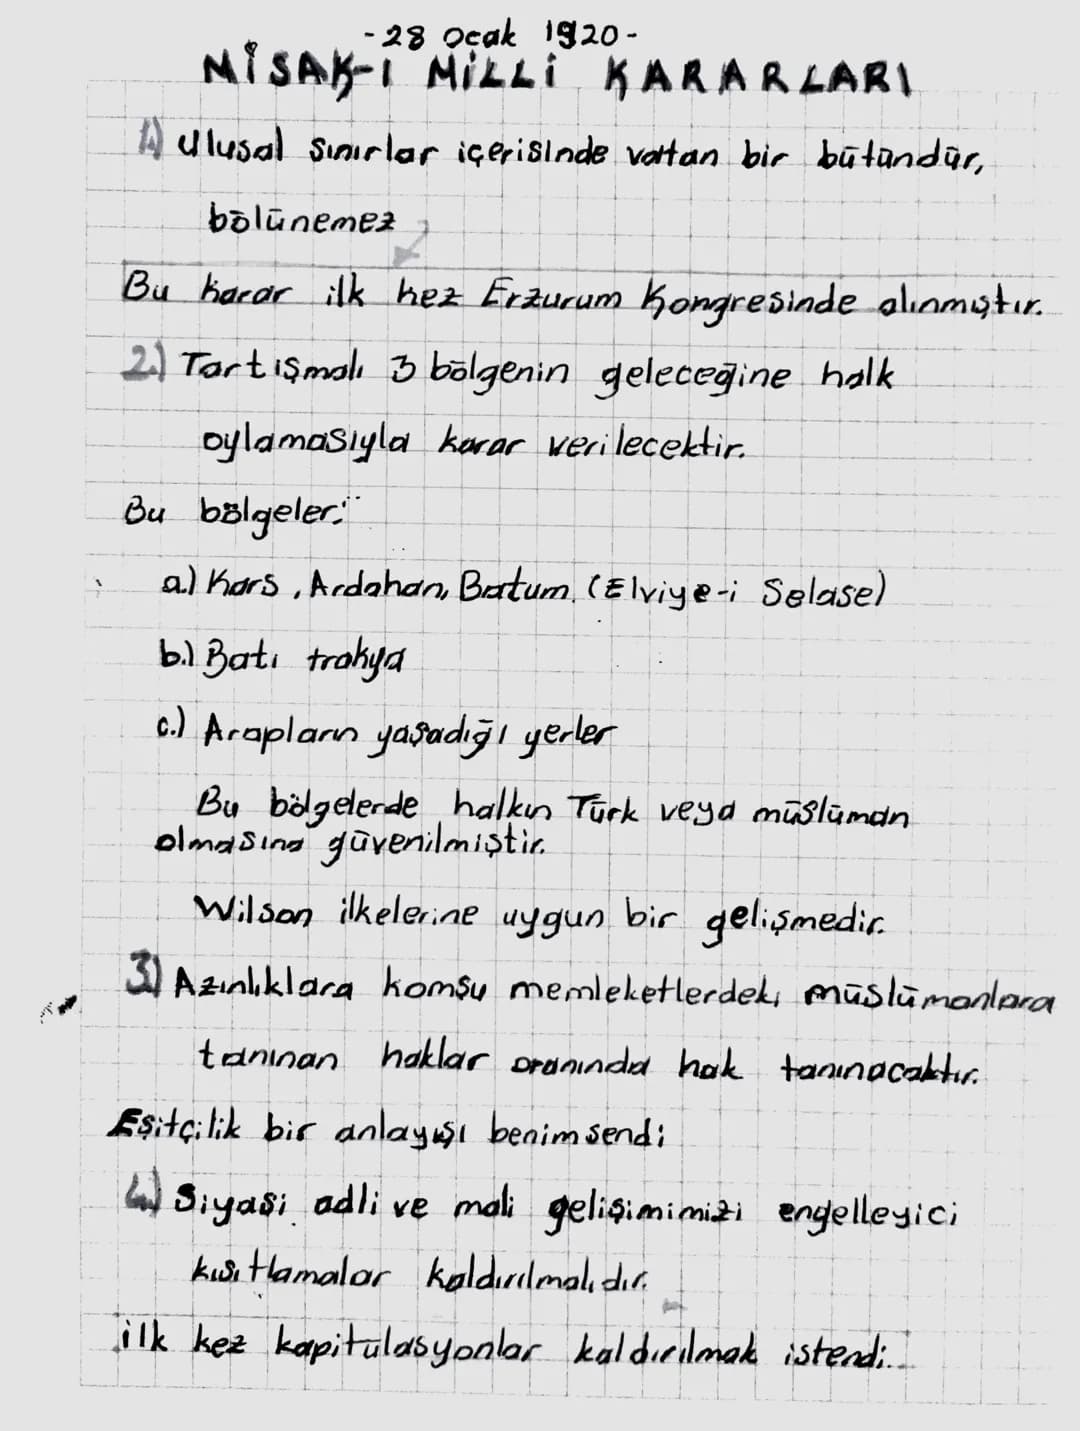 -28 Ocak 1920-
MİSAK-I MİLLİ KARARLARI
1.) Ulusal sınırlar içerisinde vatan bir bütündür,
bölünemez
Bu karar ilk kez Erzurum Kongresinde alınmıştır.
2.) Tartışmalı 3 bölgenin geleceğine halk
oylamasıyla karar verilecektir.
Bu bölgeler:
a.) Kars, Ardahan, Batum. (Elviye-i Selase)
b.) Batı trakya
c.) Arapların yaşadığı yerler
Bu bölgelerde halkın Türk veya müslüman
olmasına güvenilmiştir.
Wilson ilkelerine uygun bir gelişmedir.
3.) Azınlıklara komşu memleketlerdeki müslümanlara
tanınan haklar oranında hak tanınacaktır.
Eşitçilik bir anlayışı benimsendi
4.) Siyasi adli ve mali gelişimimizi engelleyici
kısıtlamalar kaldırılmalıdır.
ilk kez kapitülasyonlar kaldırılmak istendi.